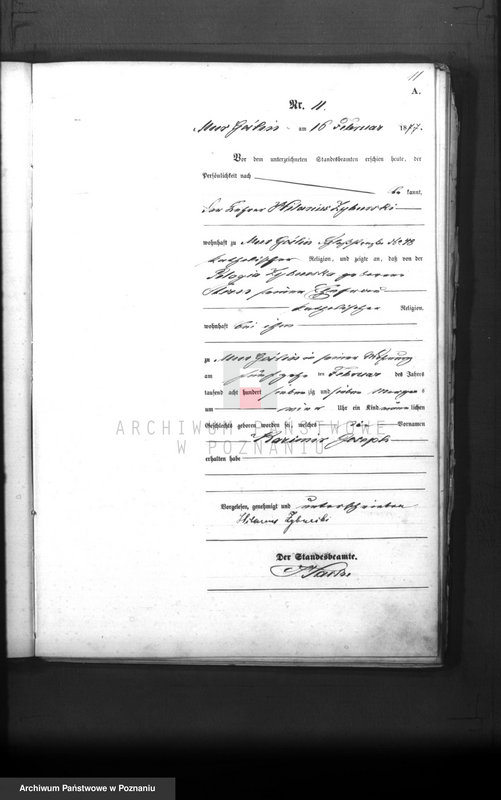 11
A.
Nr. 11.
Mur Goslin am 16 Februar 1877.
Vor dem unterzeichneten Standesbeamten erschien heute, der
Persönlichkeit nach
be kannt,
der Lehrer Hilarius Zyburski
wohnhaft zu Mur Goslin
katholischer Religion, und zeigte an, daß von der
Pelagia Zyburska geborene
seiner Ehefrau
katholischer Religion,
wohnhaft bei ihm
zu Mur Goslin in seiner Wohnung
am fünfzehn ten Februar des Jahres
tausend acht hundert sieben zig und sieben Morgens
um Uhr ein Kind männ lichen
Geschlechts geboren worden sei, welches Vornamen
Kazimir Joseph
erhalten habe
Vorgelesen, genehmigt und unterschrieben
Hilarius Zyburski
Der Standesbeamte.
ARCHIWUM PAŃSTWOWE
W POZNANIU
Archiwum Państwowe w Poznaniu